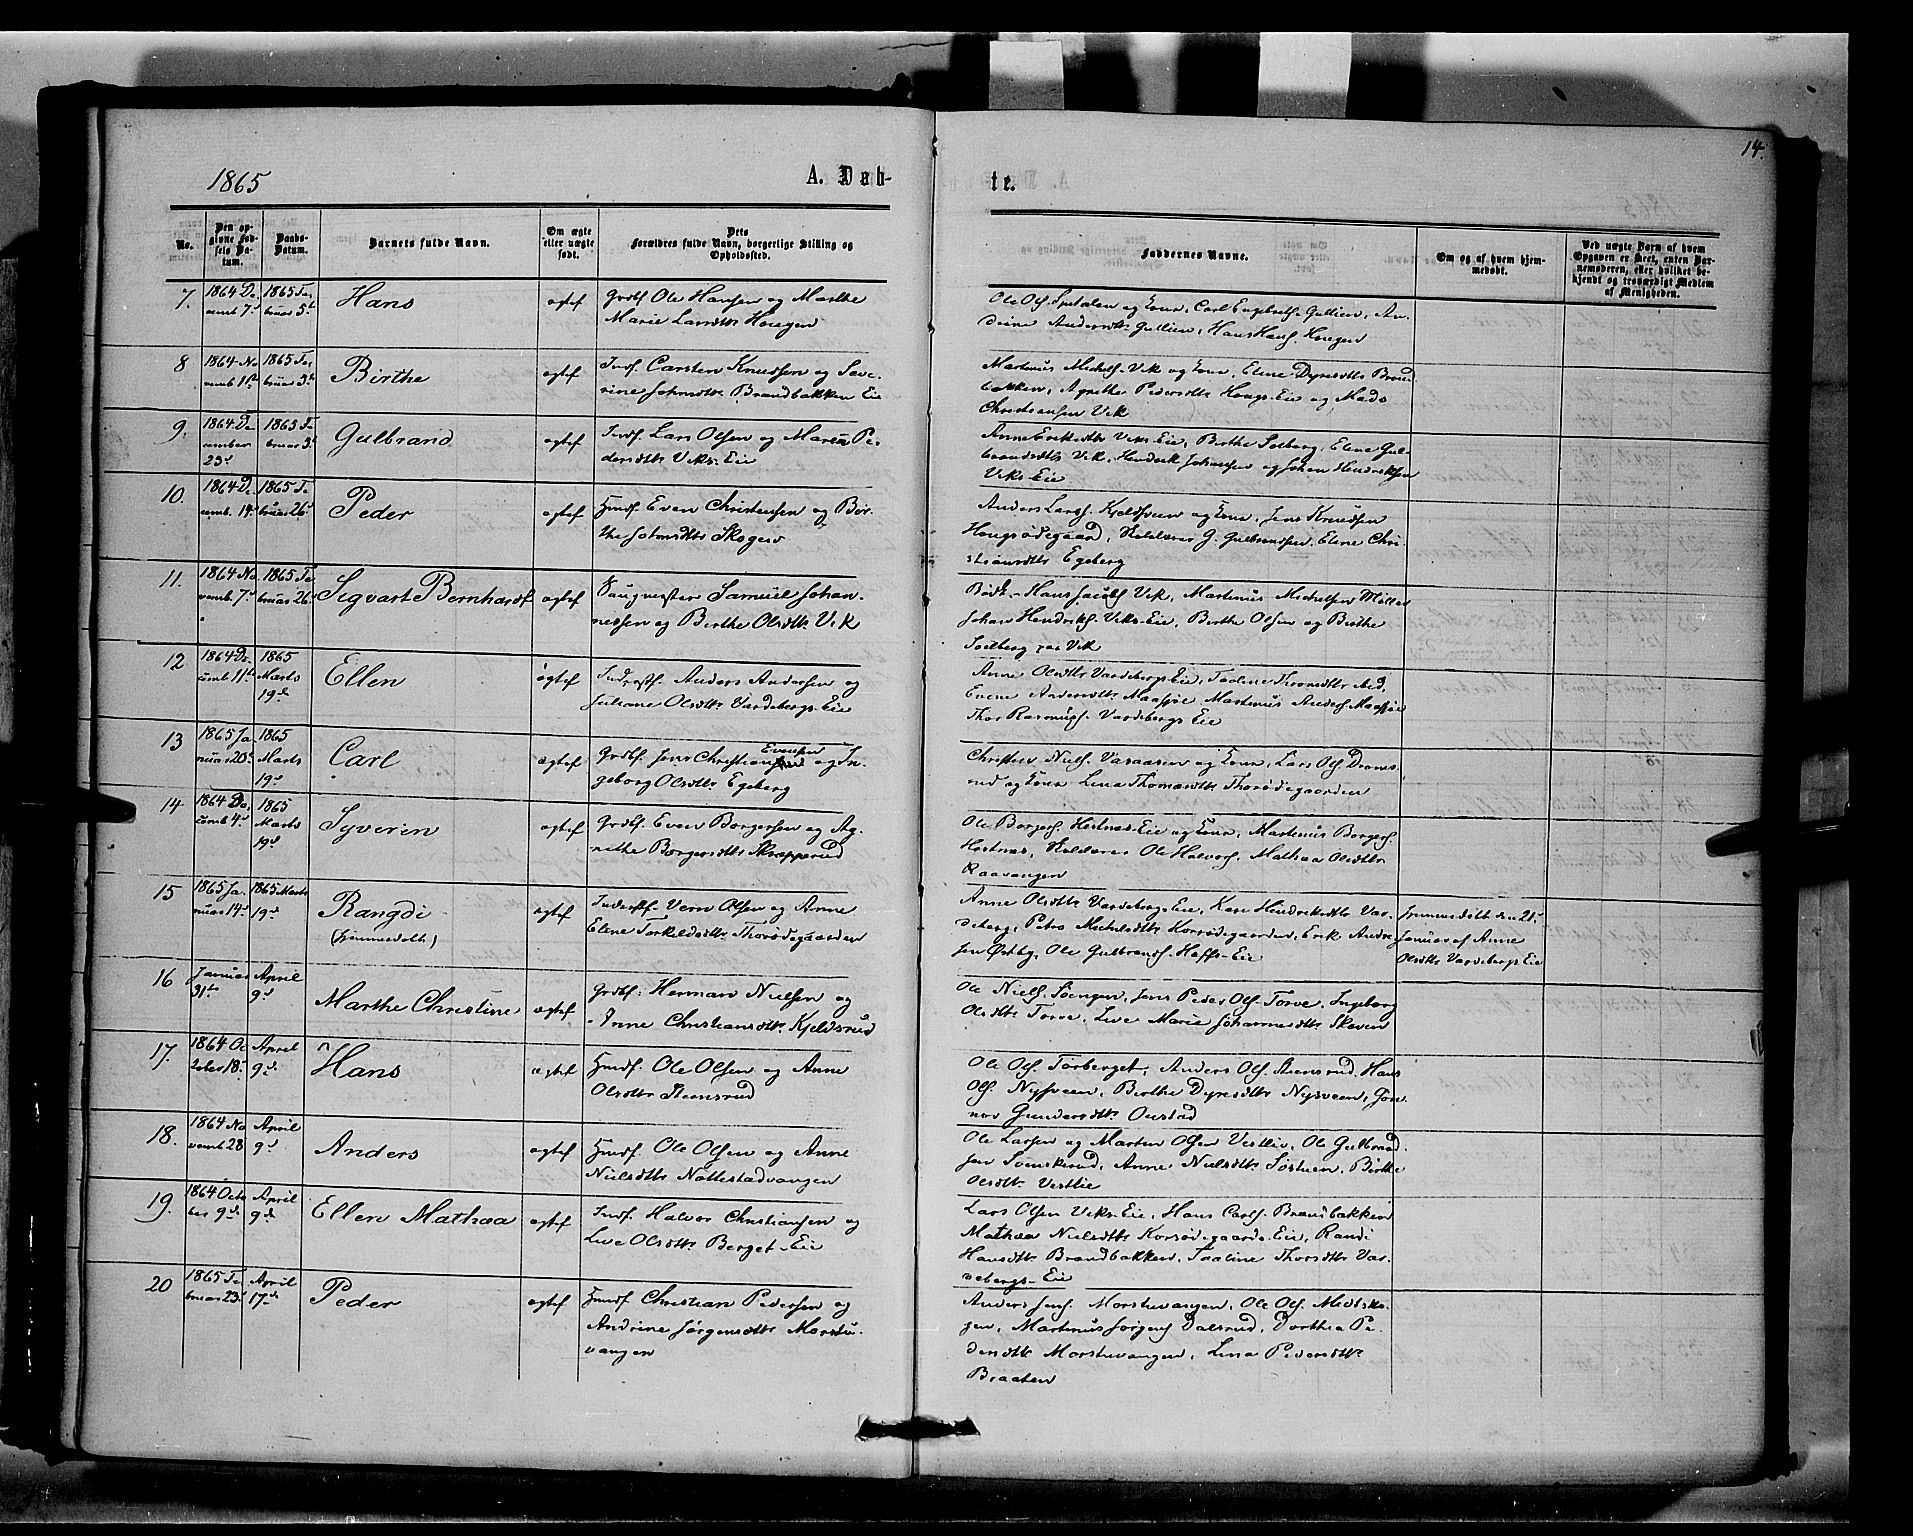 14.
1865
A. Døb-
te.
No.
Den op-
givne Fød-
sels Da-
tum.
Daabs-
Datum.
Barnets fulde Navn.
Om ægte
eller uægte
født.
Dets
Forældres fulde Navn, borgerlige Stilling og
Opholdssted.
Faddernes Navne.
Om og af hvem hjem-
medøbt.
Ved uægte Børn af hvem
Opgaven er skeet, enten Bar-
nemoderen, eller hvilket be-
kjendt og troværdigt Medlem
af Menigheden.
7.
1864 De
cemb 7d
1865 Fe
bruar 5t
Hans
ægtef
Grdbs. Ole Hansen og Marthe
Marie Larsdttr Haugen
Ole Ols. og Kona, Carl Engebrets. Gullien, An
drine Andersdttr Gullien, Hans Hans. Haugen
8
1864 No
vemb 1st
1865 Fe
bruar 5t
Birthe
ægtef
Inds. Carsten Knudsen og Seve-
rine Johnsdttr Brandbakken Eie
Martinus Michels. Vik og Kona, Elene Dyresdttr Brand
bakken, Agnethe Pedersdttr Haugs-Eie og Mads
Christiansen Vik
9.
1864 De
cember
23d
1865 Fe
bruar 5t
Gulbrand
ægtef
Inds. Lars Olsen og Maria Pe-
dersdttr Viks-Eie
Anne Eriksdttr Viks-Eie, Birthe Solberg, Elene Gul-
brandsdttr Vik, Hendrik Johansen og Johan Hendriksen
Viks-Eie
10.
1864 De
cemb. 14d
1865 Fe
bruar 26d
Peder
ægtef
Husf. Even Christensen og Bir-
the Johnsdttr Skogen
Anders Larss. Kjeldsveen og Kona, Jens Knudsen
Haugsødegaard, G. Gulbrandsen, Elene Chri-
stiansdttr Egeberg
11.
1864 No
vemb. 7d
1865 Fe
bruar 26d
Sigvart Bernhardt
ægtef
Saugmester Samuel Johan-
nessen og Birthe Olsdttr Vik
Hans Jacobs. Vik, Martinus Michelsen Møller
Johan Hendriks. Viks-Eie, Birthe Olsen og Birthe
Solberg paa Vik
12
1864 De
cemb 11te
1865
Marts
19d
Ellen
ægtef
Inderst. Anders Andersen og
Juliane Olsdttr Vardebergs-Eie
Anne Olsdttr Vardebergs Eie, Taaline Thorsdttr ibid,
Evens Andersdttr Maasjøe Martinus Anders. Maasjøe
Thor Rasmuss. Vardebergs Eie
13
1865 Ja
nuar 20d
1865
Marts
19d
Carl
ægtef
Grdbs. Jens Christian Evensen og In
geborg Olsdttr Egeberg
Christen Niels. Vasaasen og Kona, Lars Ols. Drons-
rud og Kona Lena Thomasdttr Thorsødegaarden
14
1864 De
cemb 4d
1865
Marts
19d
Syverin
ægtef
Grdbs. Even Borgersen og Ag-
nethe Borgersdttr Skrapperud
Ole Borgers. Hestnæs-Eie og Kona, Martinus Borgers.
Hestnæs, Ole Halvors. Mathea Olsdttr
Raavangen
15
1865 Ja
nuar 14d
1865 Marts
19d
Rangdi
(hjemmedøbt)
ægtef
Inderst. Vern Olsen og Anne
Elene Torkeldsdttr Thorsødegaarden
Anne Olsdttr Vardebergs Eie, Kari Hendriksdttr Var-
deberg, Petra Michelsdttr Korsødegaarden, Erik Andre-
sen Østby, Ole Gulbrands. Hoffs-Eie
Hjemmedøbt den 21d
Januar af Anne
Olsdttr Vardebergs Eie
16
Januar
31te
April
9d
Marthe Christine
ægtef
Grdbs. Herman Nielsen og
Anne Christiansdttr Kjeldsrud
Ole Niels. Svengen, Jens Peder Ols. Torve, Ingeborg
Olsdttr Torve, Live Marie Johannesdttr Skoven
17.
1864 Oc
tober 18d
April
9d
Hans
ægtef
Husf. Ole Olsen og Anne
Olsdttr Steensrud
Ole Ols. Torberget, Anders Ols. Steensrud, Hans
Ols. Nysveen, Birthe Dyresdttr Nysveen, Gun-
nor Gundersdttr Oustad
18.
1864 No
vemb 28
April
9d
Anders
ægtef
Husf. Ole Olsen og Anne
Nielsdttr Nøttestadvangen
Ole Larsen og Marten Olsen Vestlie, Ole Gulbrand
sen Svenskerud, Anne Nielsdttr Sørlien, Birthe
Olsdttr Vestlie
19.
1864 Octo
ber 9d
April
9d
Ellen Mathea
ægtef
Inds. Halvor Christiansen og
Live Olsdttr Berget-Eie
Lars Olsen Viks-Eie, Hans Carls. Brandbakken
Mathea Nielsdttr Korsødegaards-Eie, Randi
Hansdttr Brandbakken, Taaline Thorsdttr Var-
debergs-Eie
20
1865 Fe
bruar 23d
April
17de
Peder
ægtef
Husf. Christian Pedersen og
Andrine Jørgensdttr Morstu-
vangen
Anders Jens. Morstuvangen, Ole Ols. Midtsko-
gen, Martinus Jørgens. Dalsrud, Dorthea Pe-
dersdttr Morstuvangen, Lina Pedersdttr
Braaten